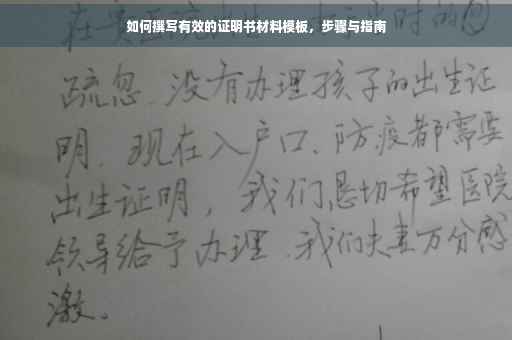 如何撰写有效的证明书材料模板，步骤与指南
疏忽、没有办理孩子的出生证
明。现在入户口、防疫都需要
出生证明，我们恳切希望医院
领导给予办理、我们夫妻万分感
激。